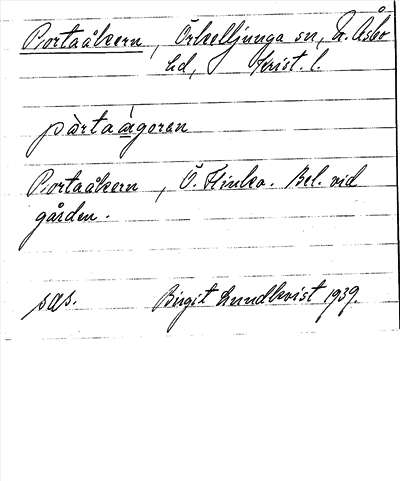 Portaåkern, Örkelljunga sn, N. Åsbo
hd, Krist. l.
pàrtaágoran
Portaåkern, Ö. Flinka. Bel. vid
gården.
sas. Birgit Lundkvist 1939.